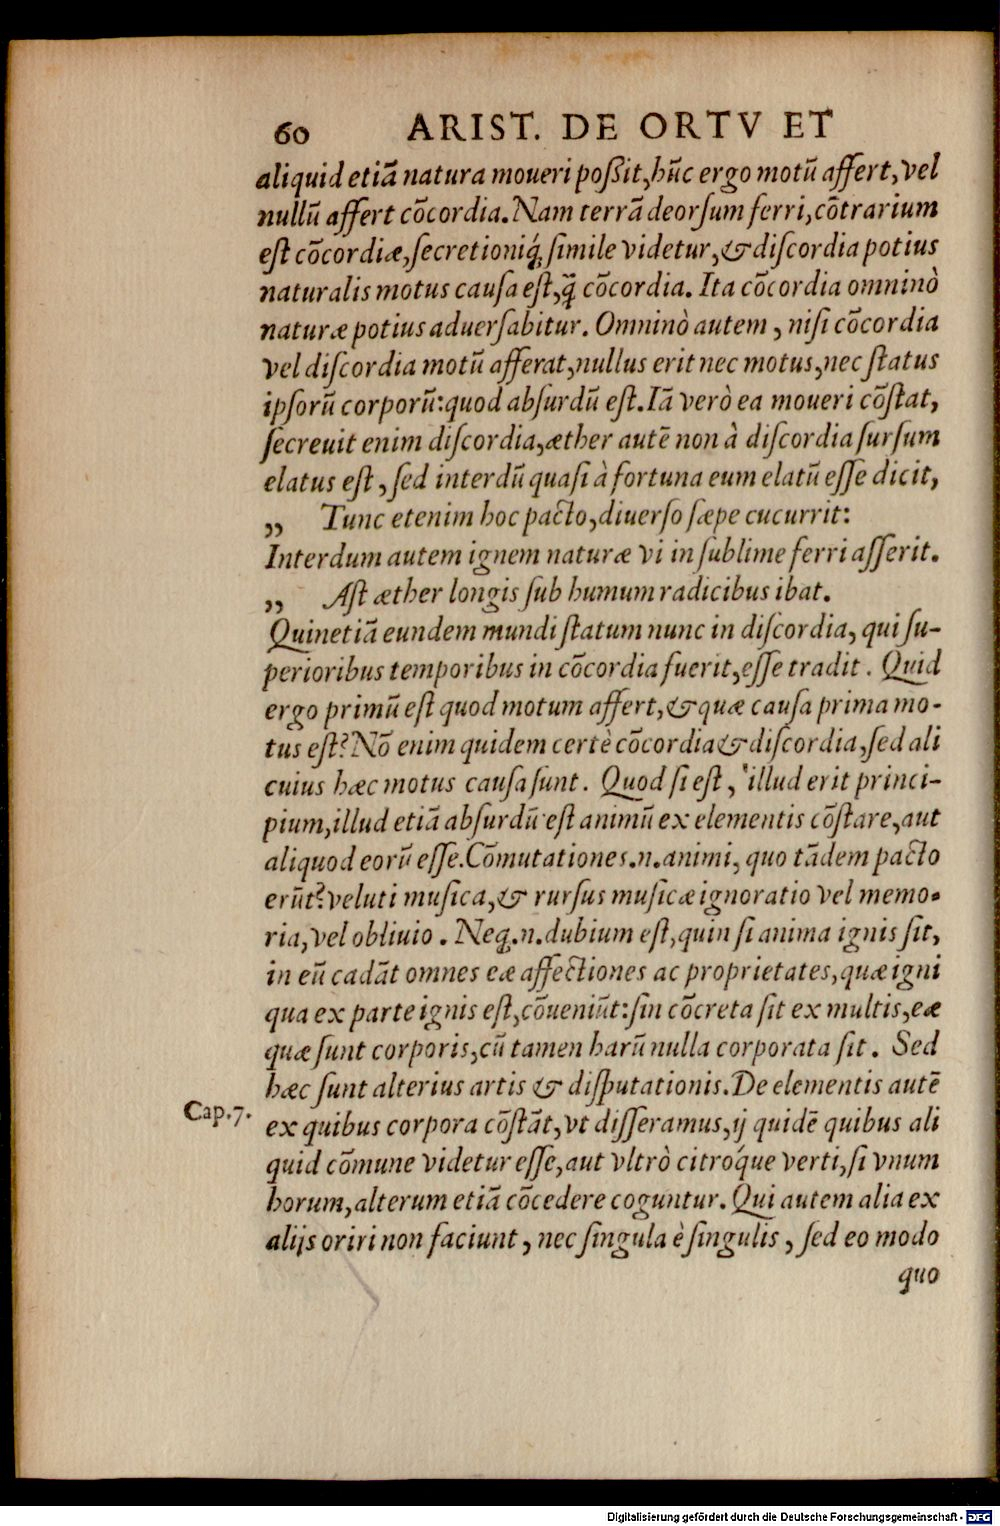 60 ARIST. DE ORTV ET
aliquid etiã natura moueri poſsit, hũc ergo motũ affert, vel
nullũ affert cõcordia. Nam terrã deorſum ferri, cõtrarium
eſt cõcordiæ, ſecretioniq́; ſimile videtur, & diſcordia potius
naturalis motus cauſa eſt, q̃ cõcordia. Ita cõcordia omninò
naturæ potius aduerſabitur. Omninò autem, niſi cõcordia
vel diſcordia motũ afferat, nullus erit nec motus, nec ſtatus
ipſorũ corporũ: quod abſurdũ eſt. Iã verò ea moueri cõſtat,
ſecreuit enim diſcordia, æther autẽ non à diſcordia ſurſum
elatus eſt, ſed interdũ quaſi à fortuna eum elatũ eſſe dicit,
„ Tunc etenim hoc pacto, diuerſo ſæpe cucurrit:
Interdum autem ignem naturæ vi in ſublime ferri aſſerit.
„ Aſt æther longis ſub humum radicibus ibat.
Quinetiã eundem mundi ſtatum nunc in diſcordia, qui ſu-
perioribus temporibus in cõcordia fuerit, eſſe tradit. Quid
ergo primũ eſt quod motum affert, & quæ cauſa prima mo-
tus eſt? Nõ enim quidem certè cõcordia & diſcordia, ſed ali
cuius hæc motus cauſa ſunt. Quod ſi eſt, illud erit princi-
pium, illud etiã abſurdũ eſt animũ ex elementis cõſtare, aut
aliquod eorũ eſſe. Cõmutationes .n. animi, quo tãdem pacto
erũt? veluti muſica, & rurſus muſicæ ignoratio vel memo-
ria, vel obliuio. Neq; .n. dubium eſt, quin ſi anima ignis ſit,
in eũ cadãt omnes eæ affectiones ac proprietates, quæ igni
qua ex parte ignis eſt, cõueniũt: ſin cõcreta ſit ex multis, eæ
quæ ſunt corporis, cũ tamen harũ nulla corporata ſit. Sed
hæc ſunt alterius artis & diſputationis. De elementis autẽ
Cap. 7.
ex quibus corpora cõſtãt, vt diſſeramus, ij quidẽ quibus ali
quid cõmune videtur eſſe, aut vltrò citroq́ue verti, ſi vnum
horum, alterum etiã cõcedere coguntur. Qui autem alia ex
alijs oriri non faciunt, nec ſingula è ſingulis, ſed eo modo
quo
Digitalisierung gefördert durch die Deutsche Forschungsgemeinschaft - DFG